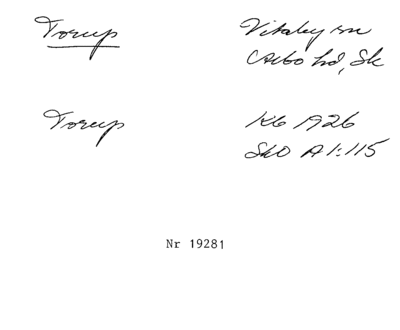 Torup Vitaby sn
Albo hd, Sk
Torup 1926
SkO A 1:115
Nr 19281